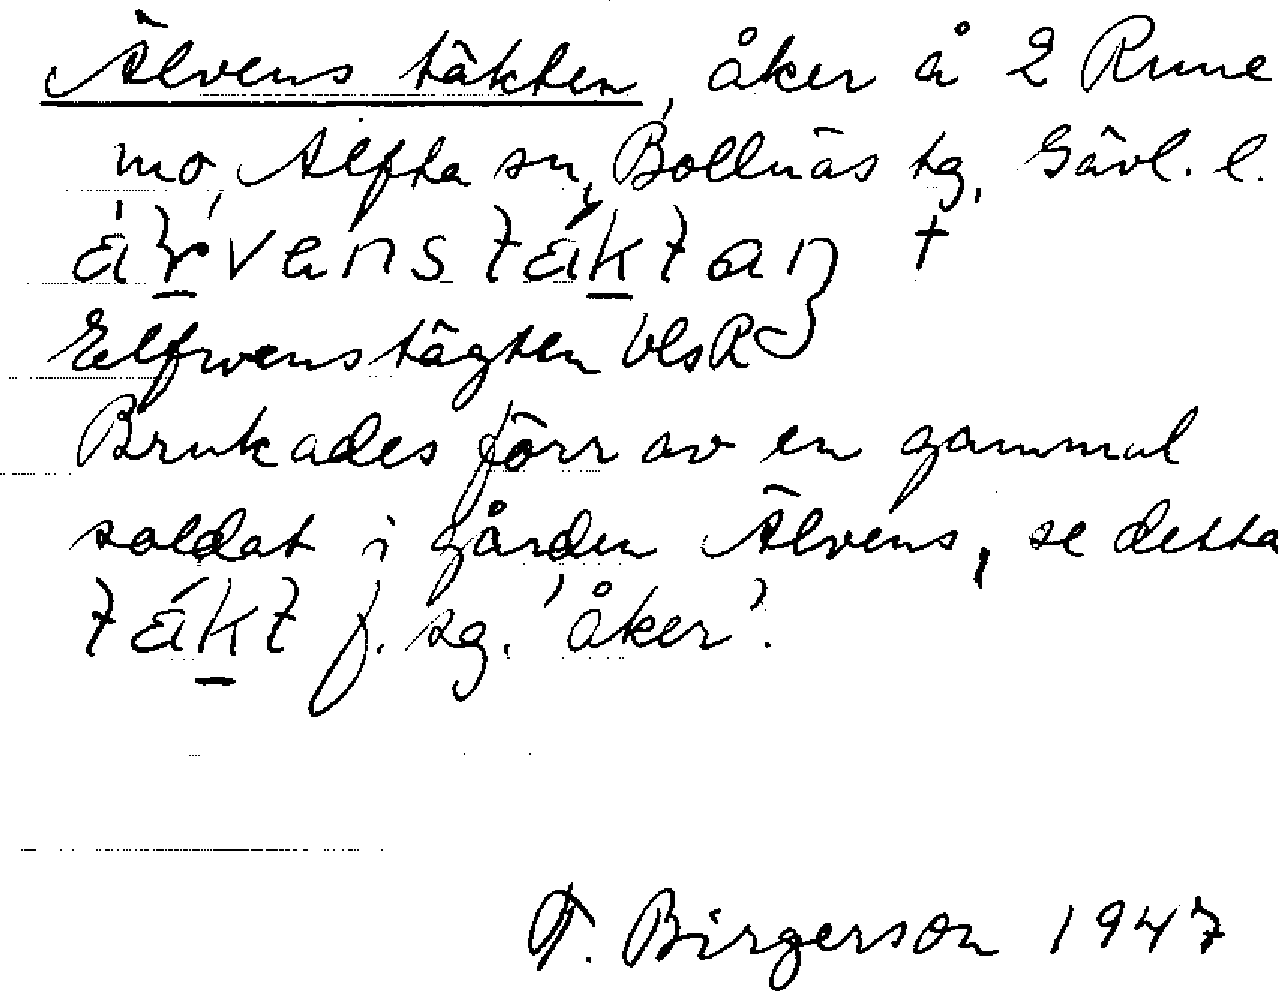 Älvens täkten, åker å 2 Rune
mo, Alfta sn, Bollnäs tg, Gävl. l.
Elfwenstägten UlsR
Brukades förr av en gammal
soldat i gården Älvens, se detta
f. sg. 'åker'.
F. Birgerson 1947